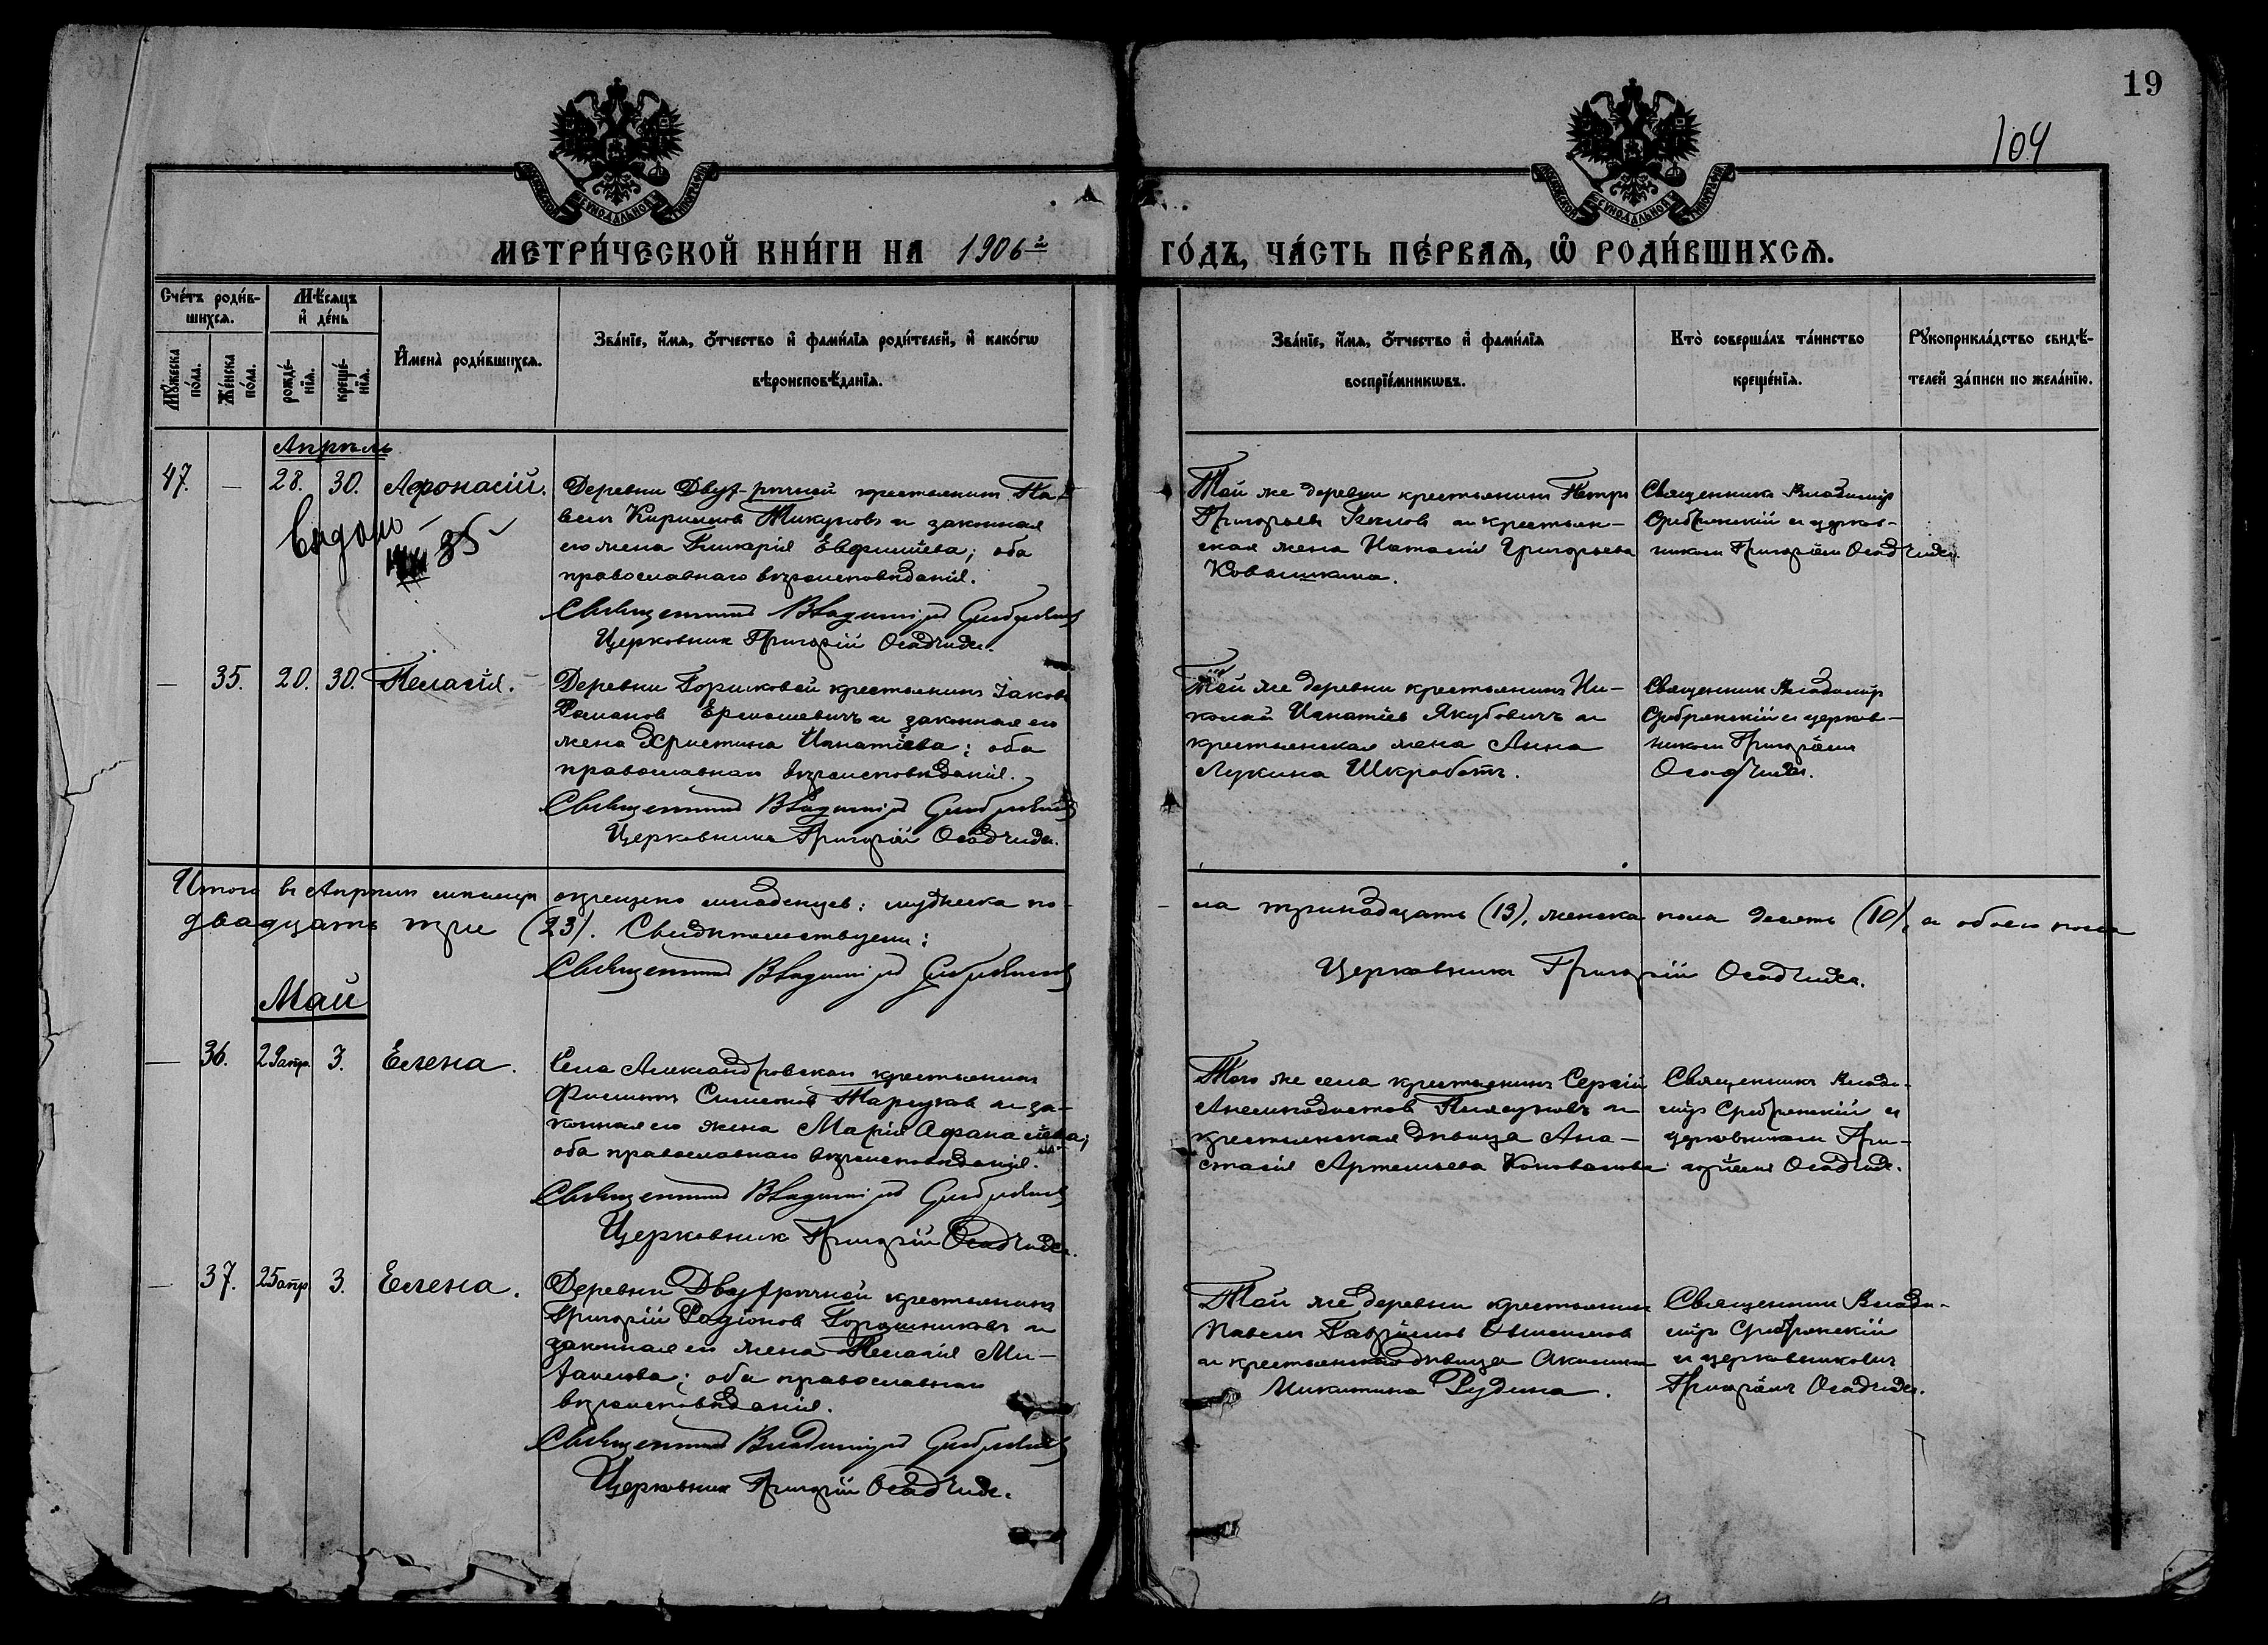 19
104
МЕТРИ́ЧЕСКОЙ КНИ́ГИ НА 1906 г
ГО́ДЪ, ЧА́СТЬ ПЕ́РВАѦ, Ѡ҆ РОДИ́ВШИХСѦ.
Сче́тъ роди́в-
шихсѧ.
Мѣ́сѧцъ
и҆ де́нь
Мꙋ́жеска
по́ла.
Же́нска
по́ла.
рожде́-
нїѧ.
креще́-
нїѧ.
И҆мена̀ роди́вшихсѧ.
Зва́нїе, и҆́мѧ, ѻ҆́тчество и҆ фами́лїѧ роди́телей, и҆ како́гѡ
вѣроисповѣ́данїѧ.
Зва́нїе, и҆́мѧ, ѻ҆́тчество и҆ фами́лїѧ
воспрїе́мникѡвъ.
Кто̀ соверша́лъ та́инство
креще́нїѧ.
Рꙋкоприкла́дство свидѣ́-
телей за́писи по жела́нїю.
Апрѣль
47. — 28. 30. Афонасій.
Деревни Двух-рѣчной крестьянинъ Па-
велъ Кириловъ Тикуновъ и законная
его жена Гликерія Евфиміева; оба
православнаго вѣроисповѣданія.
Священникъ Владиміръ
Церковникъ Григорій Осадчиди.
Той же деревни крестьянинъ Петръ
Григорьевъ и крестьян-
ская жена Наталія Григорьева
Священникъ Владиміръ
и церков-
никомъ Григоріемъ
Выдано
35
— 35. 20. 30. Пелагія.
Деревни крестьянинъ Іаковъ
Романовъ Ермошевичъ и законная его
жена Христина Игнатіева; оба
православнаго вѣроисповѣданія.
Священникъ Владиміръ
Церковникъ Григорій Осадчиди.
Той же деревни крестьянинъ Ни-
колай Игнатіевъ Якубовичъ и
крестьянская жена Анна
Лукина Шкработъ.
Священникъ Владиміръ
и церков-
никомъ Григоріемъ
Итого въ Апрѣлѣ мѣсяцѣ окрещено младенцевъ: мужеска по-
ла тринадцать (13), женска пола десять (10), а обоего пола
двадцать три (23). Свидѣтельствуемъ:
Священникъ Владиміръ
Церковникъ Григорій Осадчиди.
Май
— 36. 29 апр. 3. Елена.
Села Александровскаго крестьянинъ
Филиппъ Симеоновъ и за-
конная его жена Марія Афанасіева;
оба православнаго вѣроисповѣданія.
Священникъ Владиміръ
Церковникъ Григорій Осадчиди.
Того же села крестьянинъ Сергій
и
крестьянская дѣвица Ана-
стасія Артемьева Коновалова
Священникъ Влади-
міръ и
церковникомъ Гри-
горіемъ
— 37. 25 апр. 3. Елена.
Деревни Двухрѣчной крестьянинъ
Григорій Родіоновъ и
законная его жена Пелагія Ми-
хаилова; оба православнаго
вѣроисповѣданія.
Священникъ Владиміръ
Церковникъ Григорій Осадчиди.
Той же деревни крестьянинъ
Павелъ Гавріиловъ
и крестьянская дѣвица Акилина
Никитина Рудина.
Священникъ Влади-
міръ
и церковниковъ
Григоріемъ